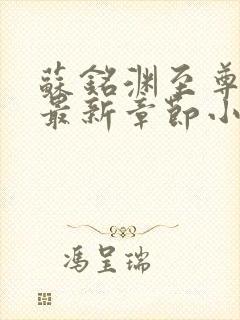 蘇銘渊至尊
最新章節小
馮呈瑞